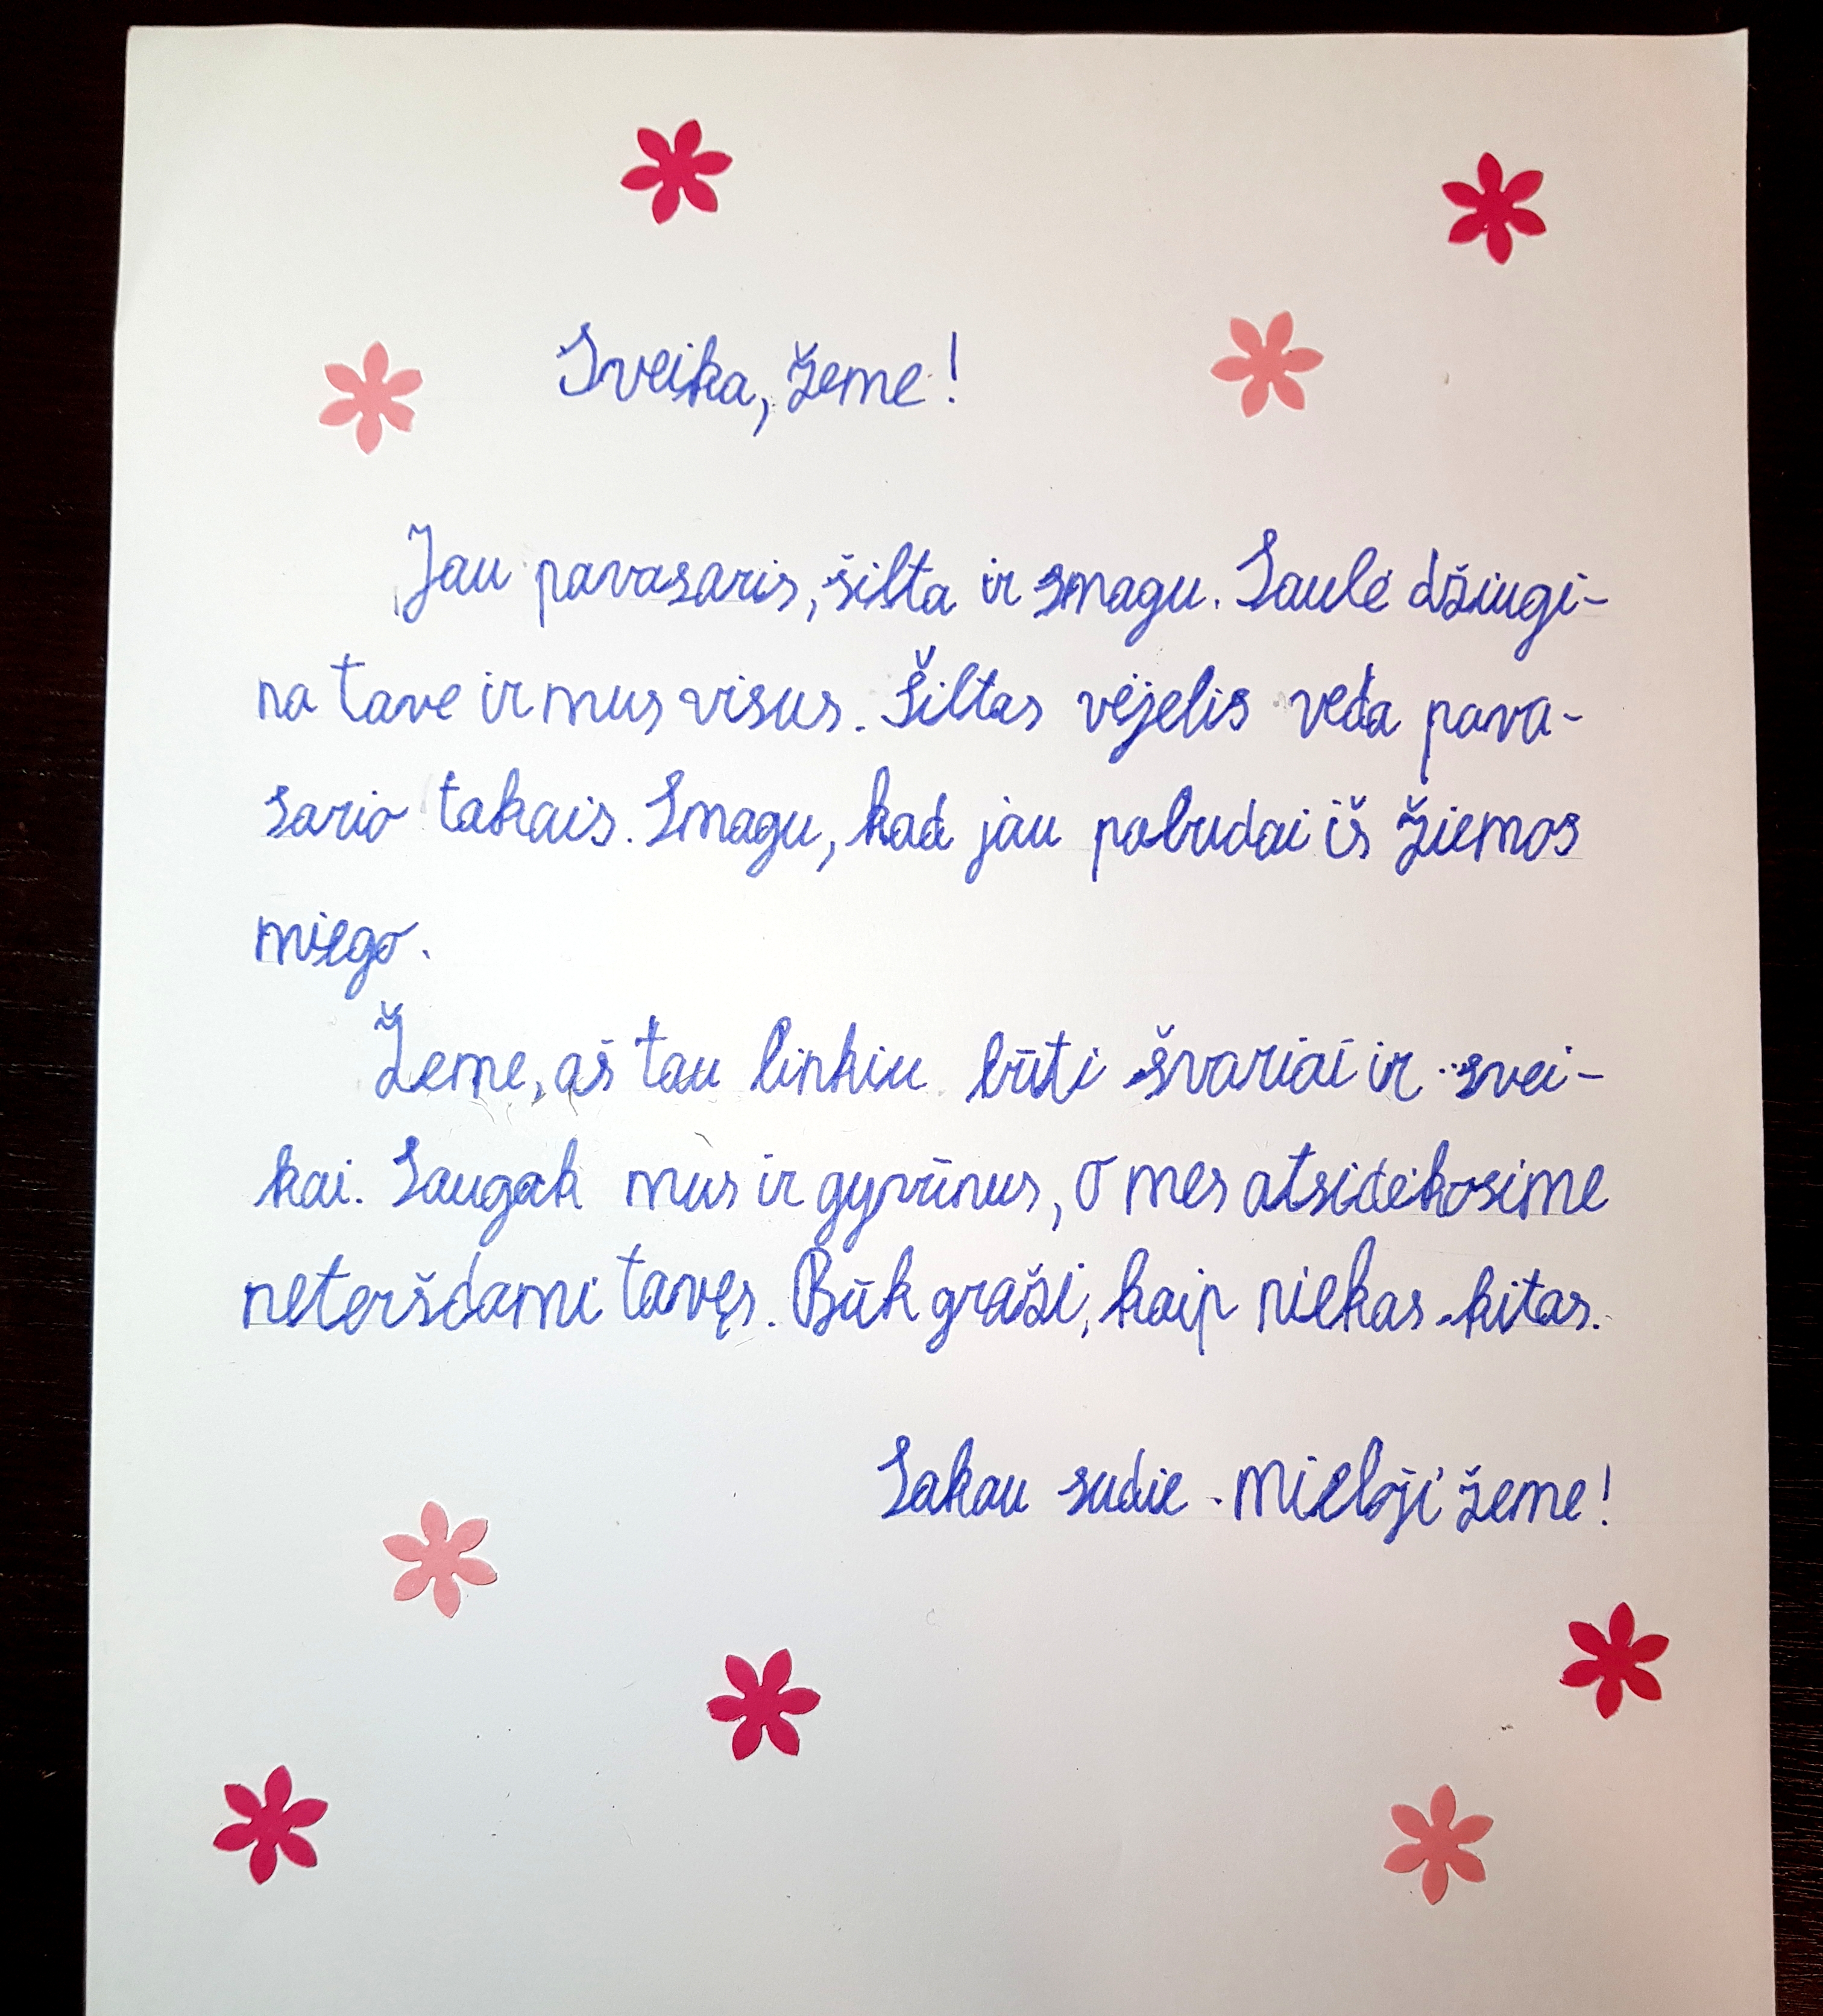 Sveika, žeme!
Jau pavasaris, šilta ir smagu. Saulė džiugi-
na tave ir mus visus. Šiltas vėjelis veda pava-
sario takais. Smagu, kad jau pabudai iš žiemos
miego.
Žeme, aš tau linkiu būti švariai ir svei-
kai. Saugok mus ir gyvūnus, o mes atsidėkosime
neteršdami tavęs. Būk graži, kaip niekas kitas.
Sakau sudie - mieloji žeme!